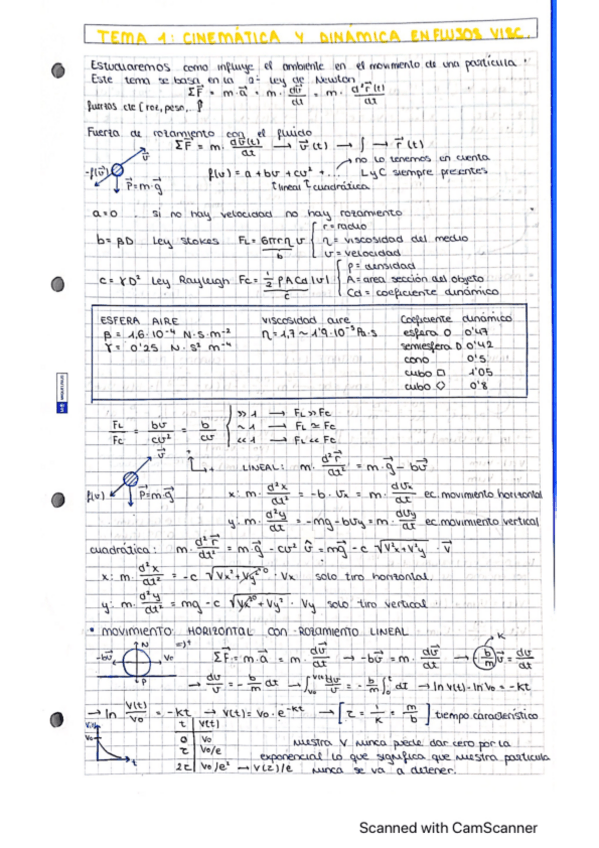 TEMA 1: CINEMÁTICA Y DINÁMICA EN FLUJOS VISC.
Estudiaremos como influye el ambiente en el movimiento de una partícula.
Este tema se basa en la 2ª ley de Newton
ΣF⃗ = m·a⃗ = m· dv⃗/dt = m· d²r⃗(t)/dt²
fuerzas cte (roz, peso, ...)
Fuerza de rozamiento con el fluido
ΣF⃗ = m· dv⃗(t)/dt → v⃗(t) → ∫ → r⃗(t)
-f(v⃗) v⃗ P⃗=m·g⃗
f(v) = a + bv + cv² + ... → no lo tenemos en cuenta
lineal cuadrática L y C siempre presentes
a=0 . si no hay velocidad no hay rozamiento
b = βD Ley Stokes FL = 6πrη v { r = radio
b η = viscosidad del medio
v = velocidad
c = γD² Ley Rayleigh Fc = 1/2 ρACd |v| { ρ = densidad
c A = area sección del objeto
Cd = coeficiente dinámico
ESFERA AIRE
β = 1,6·10⁻⁴ N·s·m⁻²
γ = 0'25 N·s²m⁻⁴
viscosidad aire
η = 1,7 ~ 1'9·10⁻⁵ Pa·s
Coeficiente dinámico
esfera O 0'47
semiesfera D 0'42
cono 0'5
cubo □ 1'05
cubo ◇ 0'8
FL/Fc = bv/cv² = b/cv { >> 1 → FL >> Fc
~ 1 → FL ≃ Fc
<< 1 → FL << Fc
f(v) v⃗ P⃗=m·g⃗
LINEAL: m· d²r⃗/dt² = m·g⃗ - bv⃗
x: m· d²x/dt² = -b·vx = m· dvx/dt ec. movimiento horizontal
y: m· d²y/dt² = -mg - bvy = m· dvy/dt ec. movimiento vertical
cuadrática: m· d²r⃗/dt² = m·g⃗ - cv² v̂ = mg⃗ - c √(v²x+v²y) · v⃗
x: m· d²x/dt² = -c √(vx²+vy²) · vx solo tiro horizontal.
y: m· d²y/dt² = mg - c √(vx²+vy²) · vy solo tiro vertical
• MOVIMIENTO HORIZONTAL CON ROZAMIENTO LINEAL
-bv⃗ N v₀ P ΣF⃗ = m·a⃗ = m· dv⃗/dt → -bv⃗ = m· dv⃗/dt → (b/m) v⃗ = dv⃗/dt K
→ dv/v = -b/m dt → ∫ dv/v = -b/m ∫ dt → ln v(t) - ln v₀ = -kt
→ ln v(t)/v₀ = -kt → v(t) = v₀·e^(-kt) → [τ = 1/k = m/b] tiempo característico
v(t) v₀ t
t | v(t)
0 | v₀
τ | v₀/e
2τ | v₀/e² → v(τ)/e
nuestra v nunca puede dar cero por la
exponencial lo que significa que nuestra partícula
nunca se va a detener.
Scanned with CamScanner